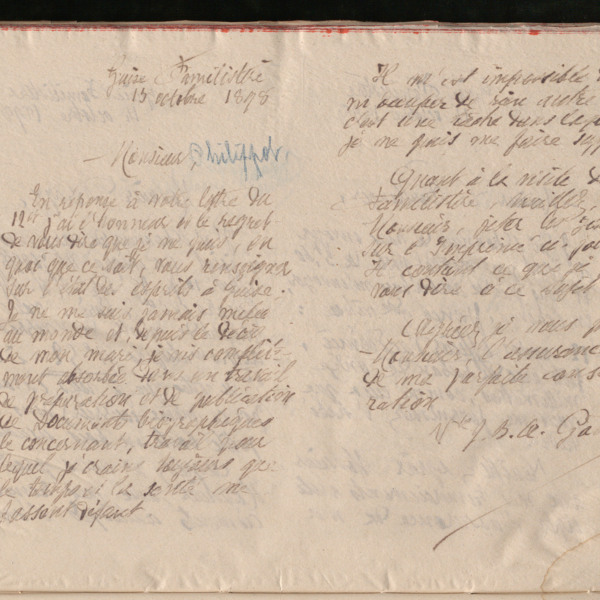 Guise Familistère
13 octobre 1898
Monsieur Philippot,
En réponse à votre lettre du
12 ct j'ai l'honneur et le regret
de vous dire que je ne puis, en
quoi que ce soit, vous renseigner
sur l'état des esprits à Guise.
Je ne me suis jamais mêlée
au monde et, depuis le décès
de mon mari, je vis complète-
ment absorbée dans un travail
de préparation et de publication
de Documents biographiques
le concernant, travail pour
lequel je crains toujours que
le temps et la santé me
fassent défaut.
Il m'est impossible
m'occuper de
c'est une tâche dans la
je ne puis me faire
Quant à la visite
Familistère, veuillez,
Monsieur, jeter les
sur l'Imprimé ci-
Il contient ce que je
vous dire à ce sujet
Agréez, je vous
Monsieur l'assurance
de ma parfaite consi
ration